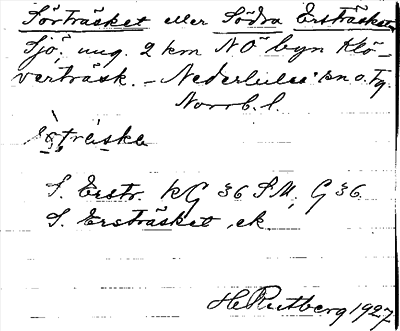 Sörträsket eller Södra Ersträsket
Sjö, ung. 2 km NÖ byn Klö-
verträsk. – Nederluleå sn o. tg.
Norrb. l.
S. Erstr. KG 36 SM, G 36.
S. Ersträsket, ek.
H Rutberg 1927